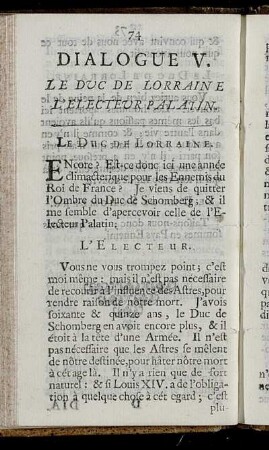 74
DIALOGUE V.
LE DUC DE LORRAINE
L'ELECTEUR PALATIN.
LE DUC DE LORRAINE.
ENcore? Est-ce donc ici une année
climacterique pour les Ennemis du
Roi de France? Je viens de quitter
l'Ombre du Duc de Schomberg, & il
me semble d'apercevoir celle de l'E-
lecteur Palatin;
L'ELECTEUR.
Vous ne vous trompez point; c'est
moi même: mais il n'est pas necessaire
de recourir à l'influence des Astres, pour
rendre raison de nôtre mort. J'avois
soixante & quinze ans, le Duc de
Schomberg en avoit encore plus, & il
étoit à la tête d'une Armée. Il n'est
pas necessaire que les Astres se mêlent
de nôtre destinée, pour hâter nôtre mort
à cet age là. Il n'y a rien que de fort
naturel: & si Louis XIV. a de l'obliga-
tion à quelque chose à cet égard; c'est
D
plu-